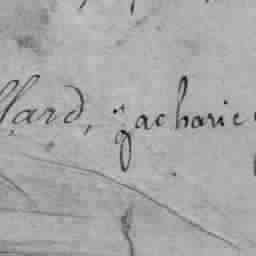 llard, zacharie